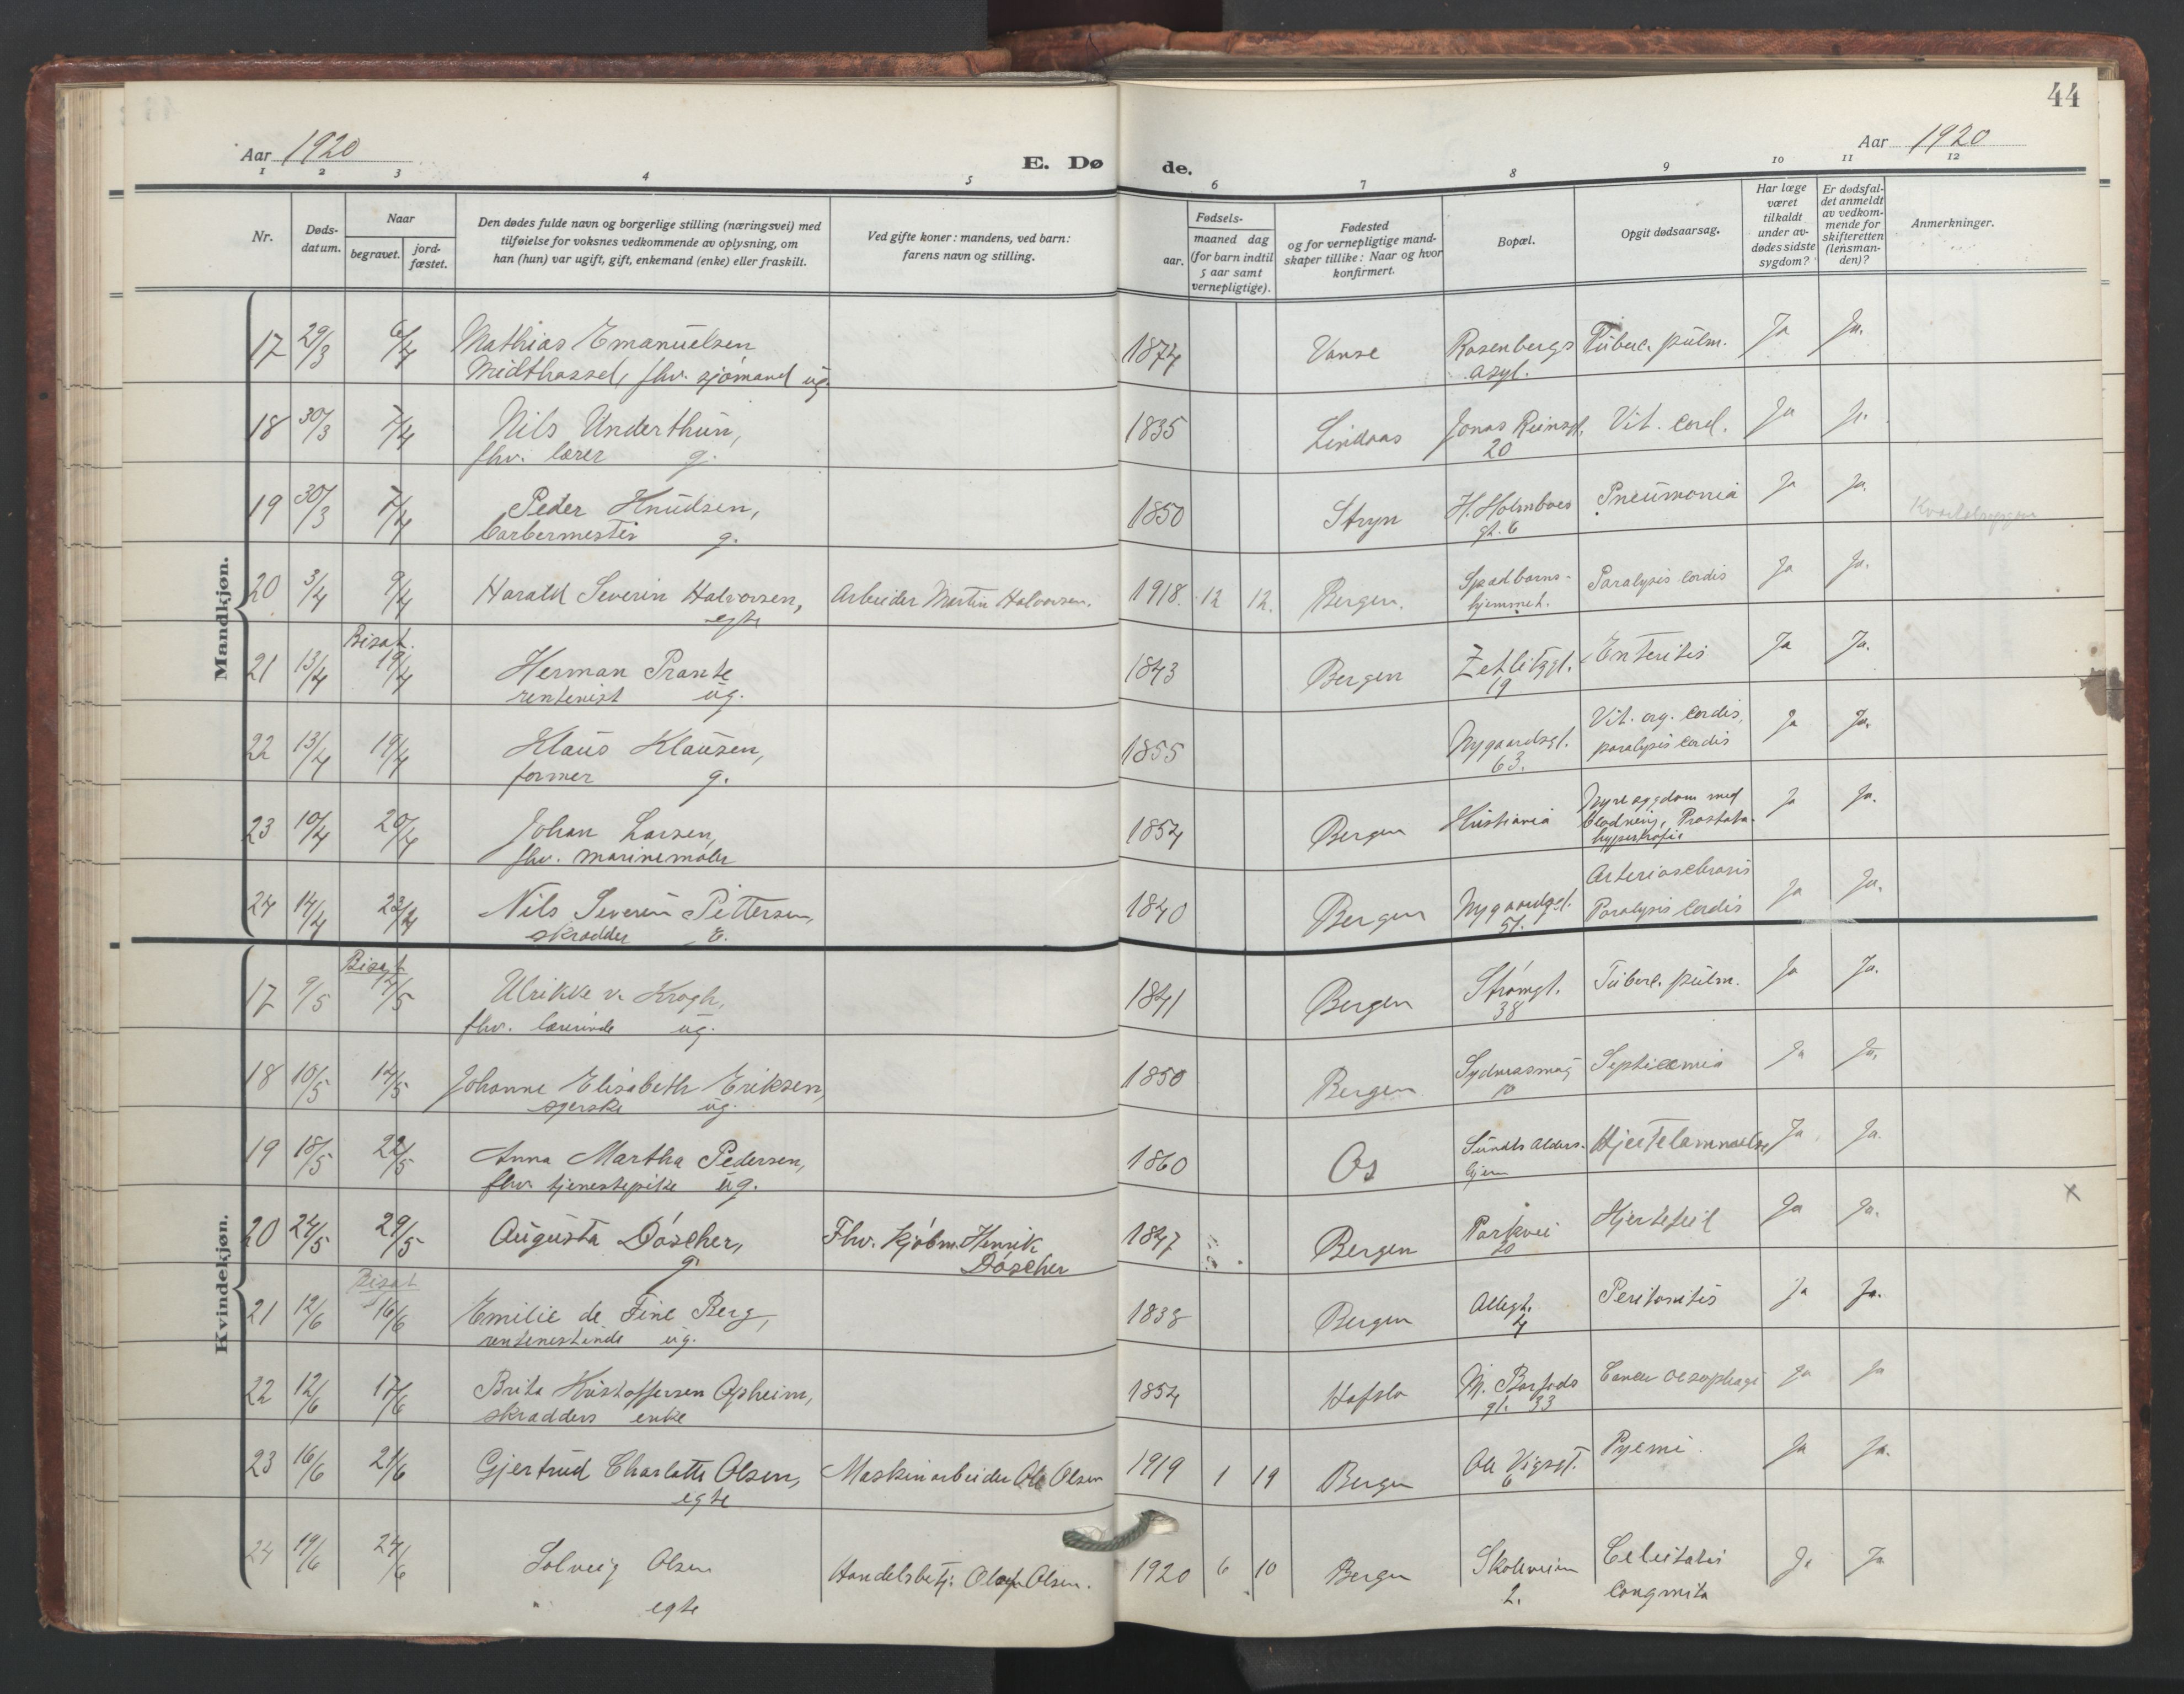 44
Aar 1920
E. Døde.
Aar 1920
1 2 3 4 5 6 7 8 9 10 11 12
Nr.
Døds-
datum.
Naar
begravet.
jord-
fæstet.
Den dødes fulde navn og borgerlige stilling (næringsvei) med
tilføielse for voksnes vedkommende av oplysning, om
han (hun) var ugift, gift, enkemand (enke) eller fraskilt.
Ved gifte koner: mandens, ved barn:
farens navn og stilling.
Fødsels-
aar.
maaned dag
(for barn indtil
5 aar samt
vernepligtige).
Fødested
og for vernepligtige mand-
skaper tillike: Naar og hvor
konfirmert.
Bopæl.
Opgit dødsaarsag.
Har læge
været
tilkaldt
under av-
dødes sidste
sygdom?
Er dødsfal-
det anmeldt
av vedkom-
mende for
skifteretten
(lensman-
den)?
Anmerkninger.
Mandkjøn.
17 29/3 6/4 Mathias Emanuelsen 1874 Vanse Rosenbergs Tuberc. pulm. Ja Ja.
Midthassel, fhv. sjømand ug. asyl.
18 30/3 7/4 Nils Underthun, 1835 Lindaas Jonas Reinsgt. Vit. cord. Ja Ja
fhv. lærer g. 20
19 30/3 7/4 Peder Knudsen, 1850 Stryn H. Holmboes Pneumonia Ja Ja.
barbermester g. gt. 6
20 3/4 9/4 Harald Severin Halvorsen, Arbeider Martin Halvorsen. 1918. 12 12. Bergen. Spædbarns- Paralysis cordis Ja Ja.
egte hjemmet.
Bisat.
21 13/4 19/4 Herman Prante 1843 Bergen Zetlitzgt. Enteritis Ja Ja.
rentenist ug. 19
22 13/4 19/4 Klaus Klausen, 1855 Nygaardsgt. Vit. org. cordis, Ja Ja.
former g. 63. paralysis cordis
23 10/4 20/4 Johan Larsen, 1854 Bergen Kristiania Nyresygdom med Ja Ja.
fhv. marinemaler blødning, Prostata-
hypertrofie
24 14/4 23/4 Nils Severin Pettersen, 1840 Bergen Nygaardsgt. Arteriosclerosis Ja Ja.
skrædder E. 51. Paralysis cordis
Kvindekjøn.
Bisat
17 9/5 14/5 Ulrikke v. Krogh, 1841 Bergen Strømgt. Tuberc. pulm. Ja Ja.
fhv. lærerinde ug. 38
18 10/5 14/5 Johanne Elisabeth Eriksen, 1850 Bergen Sydnæssmug Septicæmia Ja Ja.
syerske ug. 10
19 18/5 22/5 Anna Martha Pedersen, 1860 Os Sundts alders- Hjertelammelse Ja Ja.
fhv. tjenestepike ug. hjem
20 24/5 29/5 Augusta Döscher, Fhv. kjøbm. Henrik 1847 Bergen Parkvei Hjertefeil Ja Ja. x
g. Döscher 20
Bisat
21 12/6 16/6 Emilie de Fine Berg, 1838 Bergen Allegt. Peritonitis Ja Ja.
rentenistinde ug. 4
22 12/6 17/6 Brita Kristoffersen Opheim, 1854 Hafslo M. Barfods Cancer oesophagi Ja Ja
skrædders enke gt. 33
23 16/6 21/6 Gjertrud Charlotte Olsen, Maskinarbeider Ole Olsen 1919 1 19 Bergen Ole Vigsgt. Pyemi. Ja Ja.
egte 6
24 19/6 24/6 Solveig Olsen Handelsbetj. Olaf Olsen. 1920 6 10 Bergen Skolveien Ja Ja
egte 2. congenita